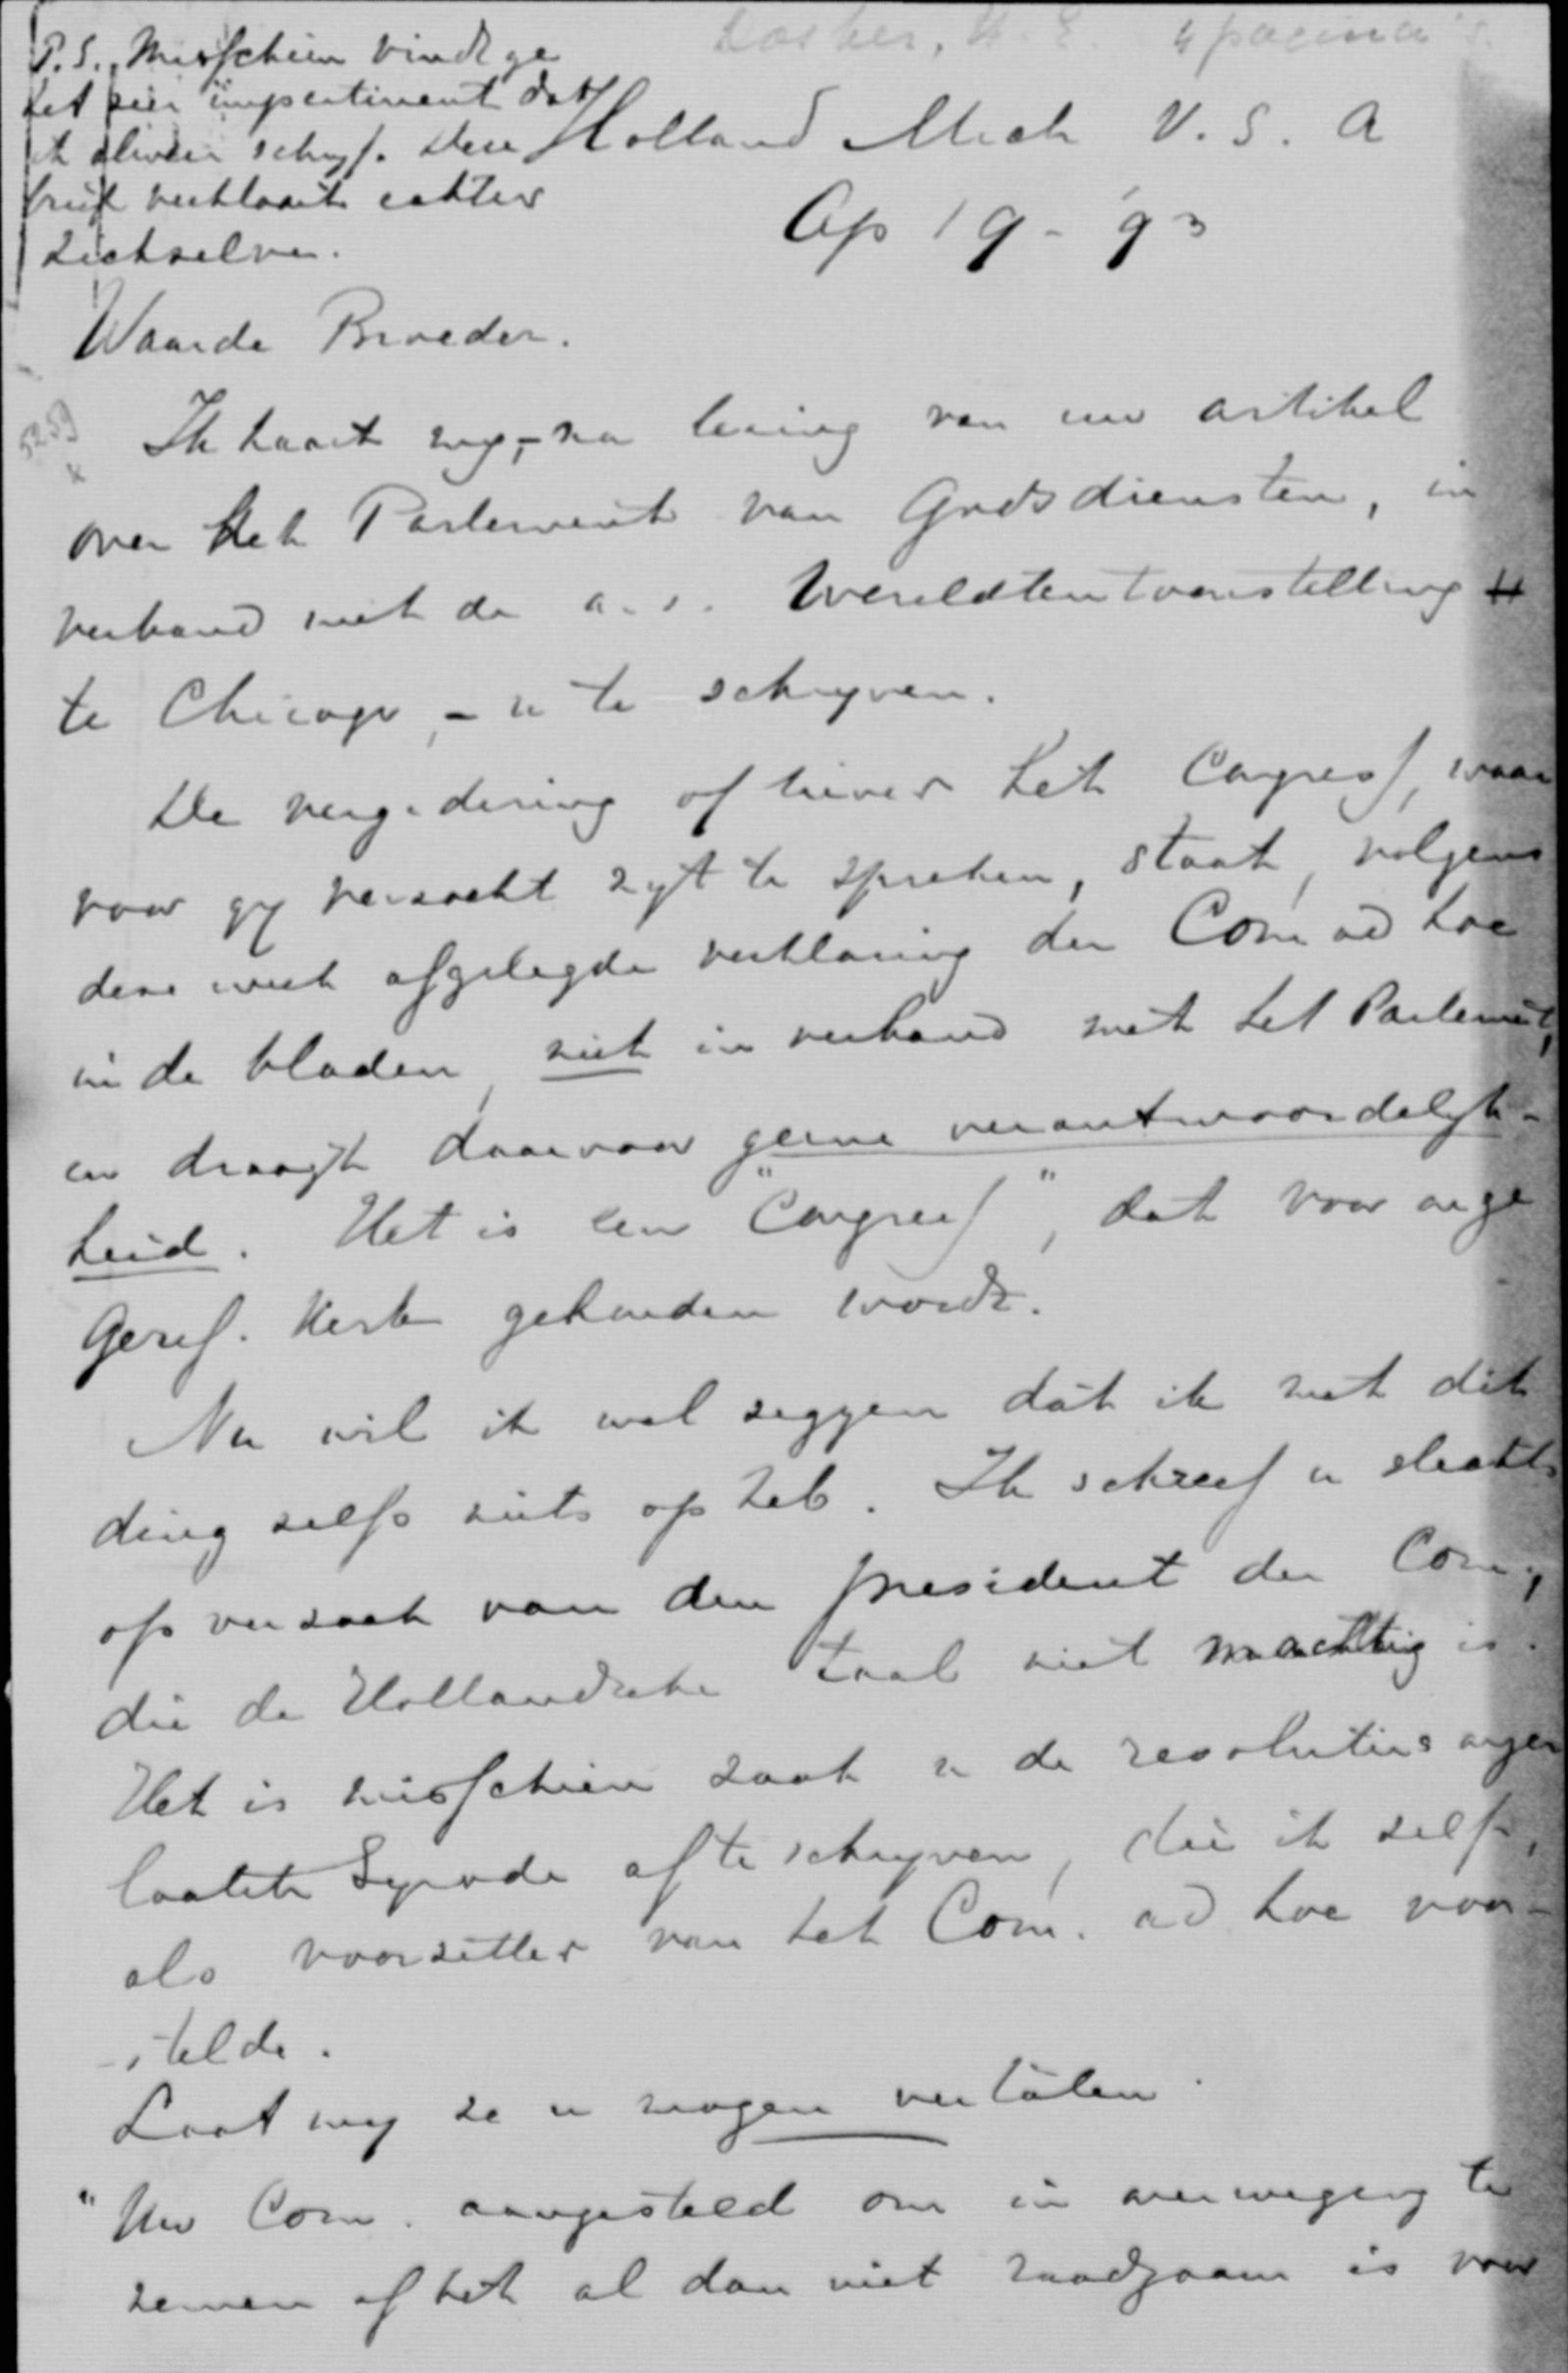 Dosker, H. E. 4 pagina's.
P.S. Misschien vindt ge
het zeer impertinent dat
ik alweer schryf. Deze
brief verklaart echter
zichzelven.
Holland Mich V. S. A
Ap 19 - '93
Waarde Broeder.
5259
Ik haast my, - na lezing van uw artikel
over het Parlement van Godsdiensten, in
verband met de a. s. Wereldtentoonstelling
te Chicago, - u te schryven.
De vergadering of liever het Congres, waar
voor gy verzocht zyt te spreken, staat, volgens
deze week afgelegde verklaring der Com ad hoc
in de bladen, niet in verband met het Parlement,
en draagt daarvoor geene verantwoordelyk-
heid. Het is een "Congres", dat voor onze
Geref. Kerk gehouden wordt.
Nu wil ik wel zeggen dat ik met dit
ding zelfs niets op heb. Ik schreef u slechts
op verzoek van den president der Com,
die de Hollandsche taal niet machtig is.
Het is misschien zaak u de resoluties onzer
laatste Synode af te schryven, die ik zelf,
als voorzitter van het Com. ad hoc voor-
stelde.
Laat my ze u mogen vertalen.
"Uw Com. aangesteld om in overweging te
nemen of het al dan niet raadzaam is voor